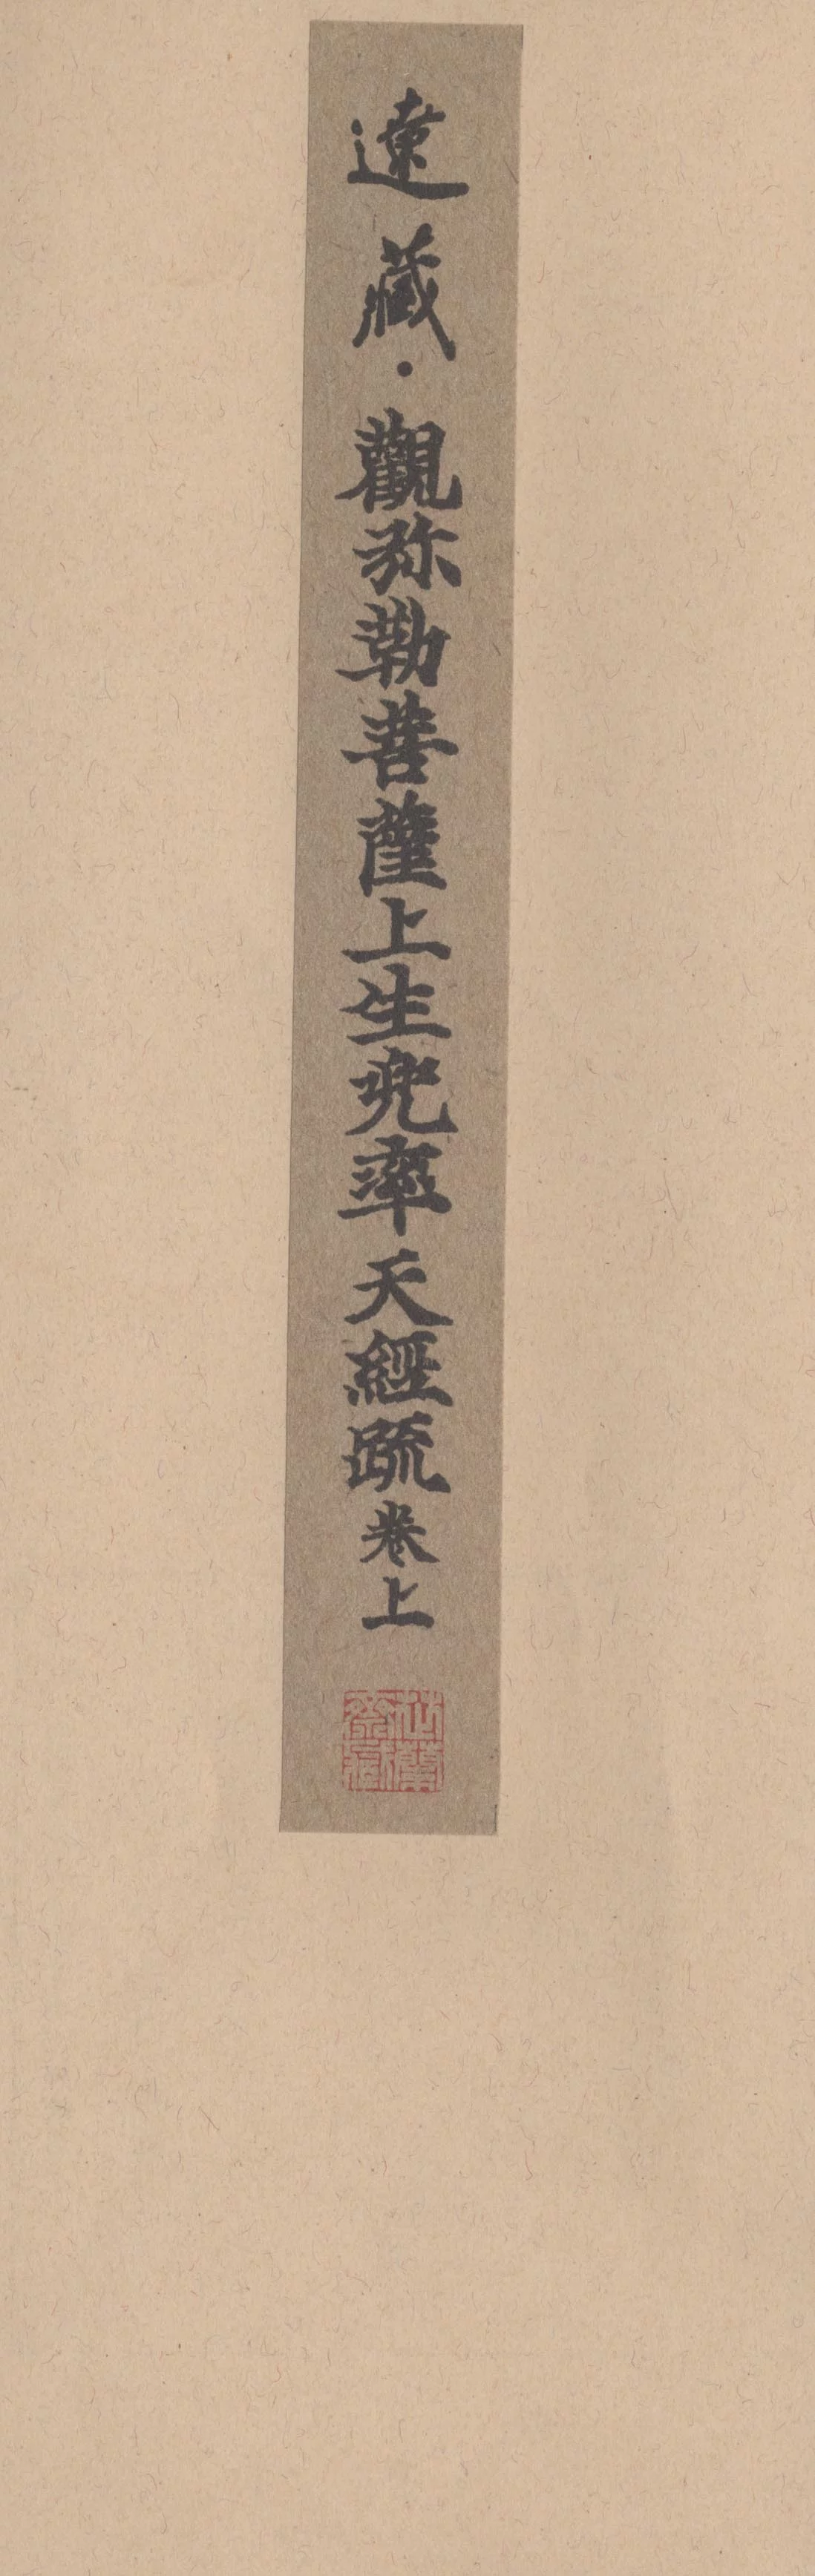 遼藏·觀弥勒菩薩上生兜率天經疏卷上